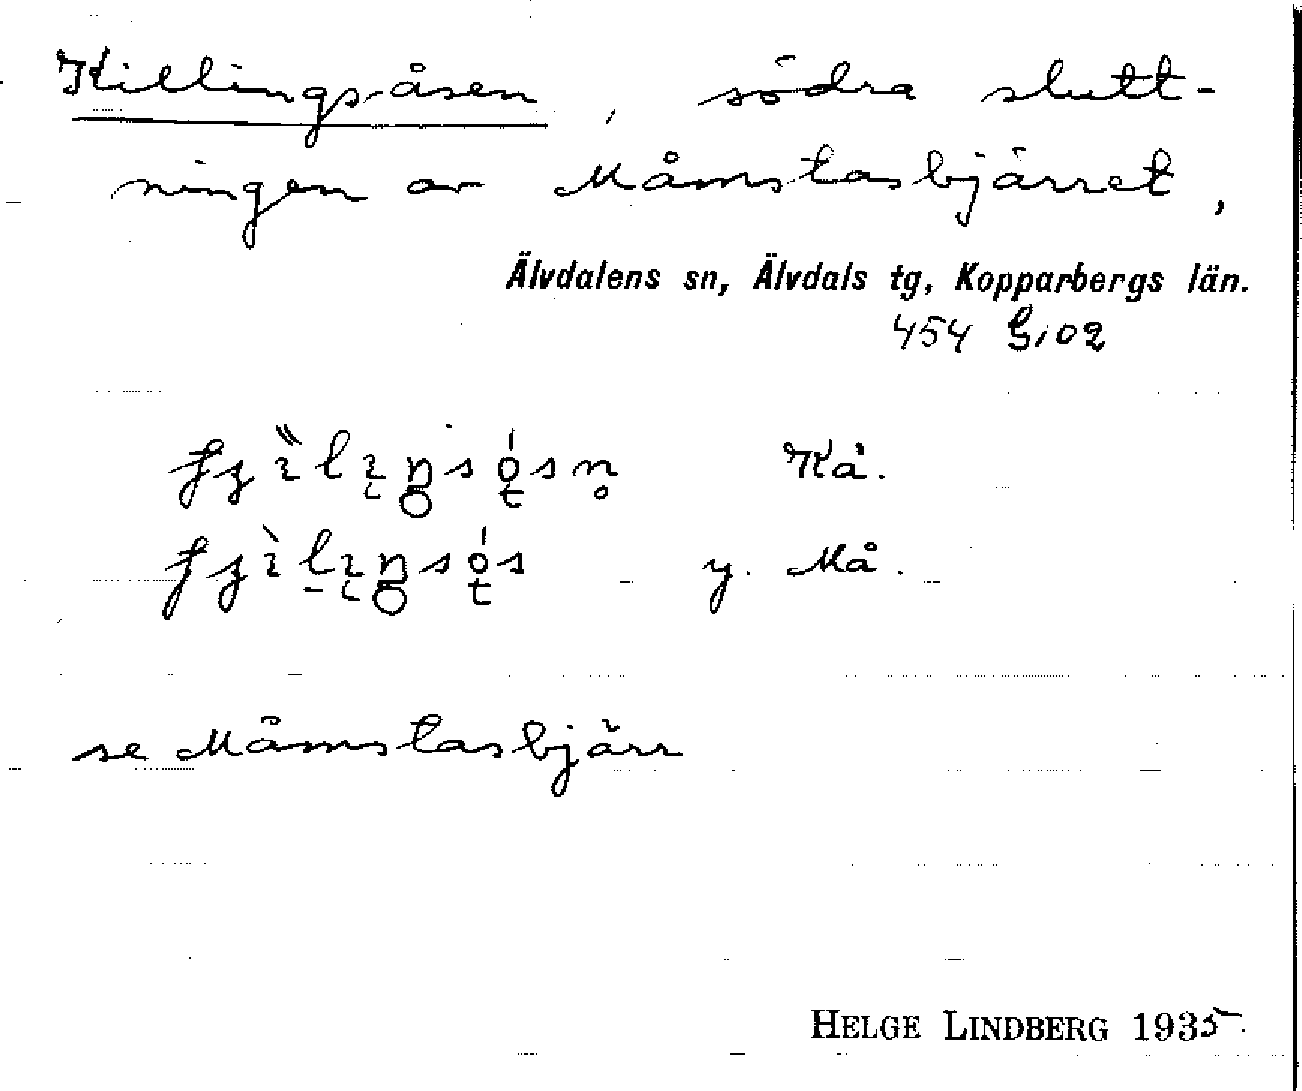 Killings-åsen, södra slutt-
ningen av Måmstasbjärret,
Älvdalens sn, Älvdals tg, Kopparbergs län.
454 G102
Kå.
y. Må.
se Måmstasbjärr
HELGE LINDBERG 1935.